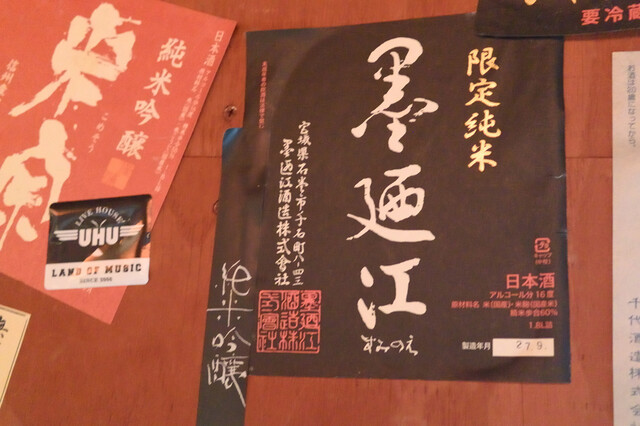 日本酒
純米吟醸
こめそう
LIVE HOUSE
UHU
LAND OF MUSIC
純米吟醸
限定純米
墨廼江
すみのえ
宮城県石巻市千石町八-四三
墨廼江酒造株式會社
日本酒
アルコール分16度
原材料名 米(国産)・米麹(国産米)
精米歩合60%
1.8L詰
製造年月 27.9.
キャップ
要冷蔵
お酒は20歳になってから。
千代酒造株式会